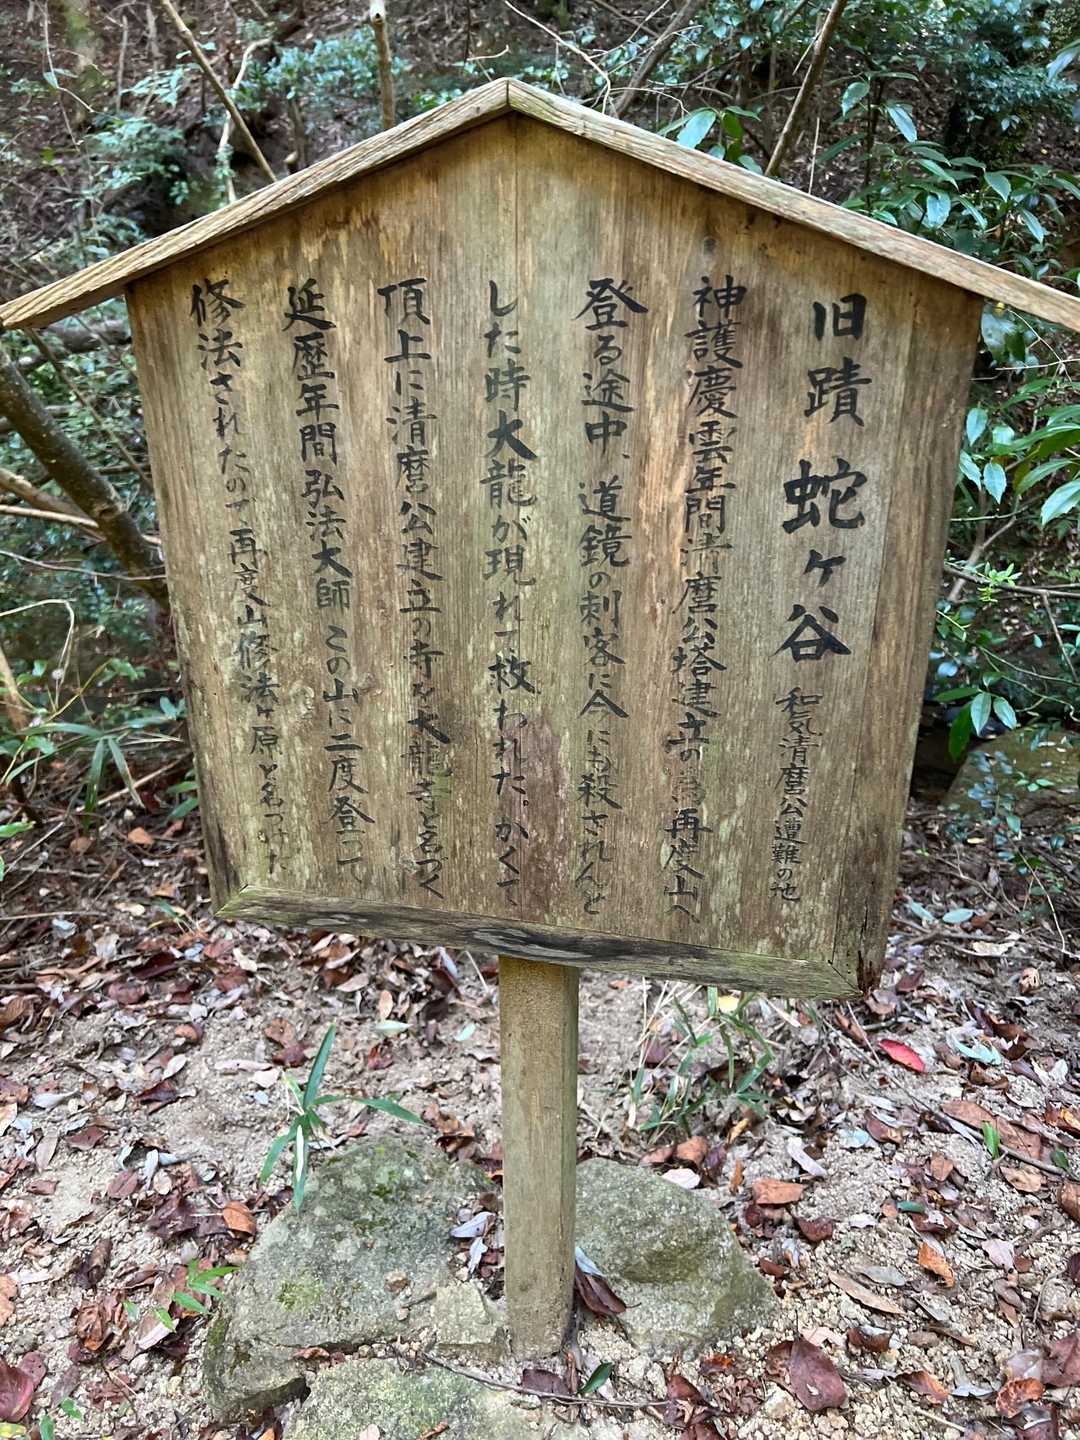 旧蹟 蛇ヶ谷 和気清麿公遭難の地
神護慶雲年間清麿公塔建立の為再度山へ
登る途中、道鏡の刺客に今にも殺されんと
した時大龍が現れて救われた。かくて
頂上に清麿公建立の寺を大龍寺と名づく
延歴年間弘法大師 この山に二度登って
修法されたので再度山修法ヶ原と名つけた